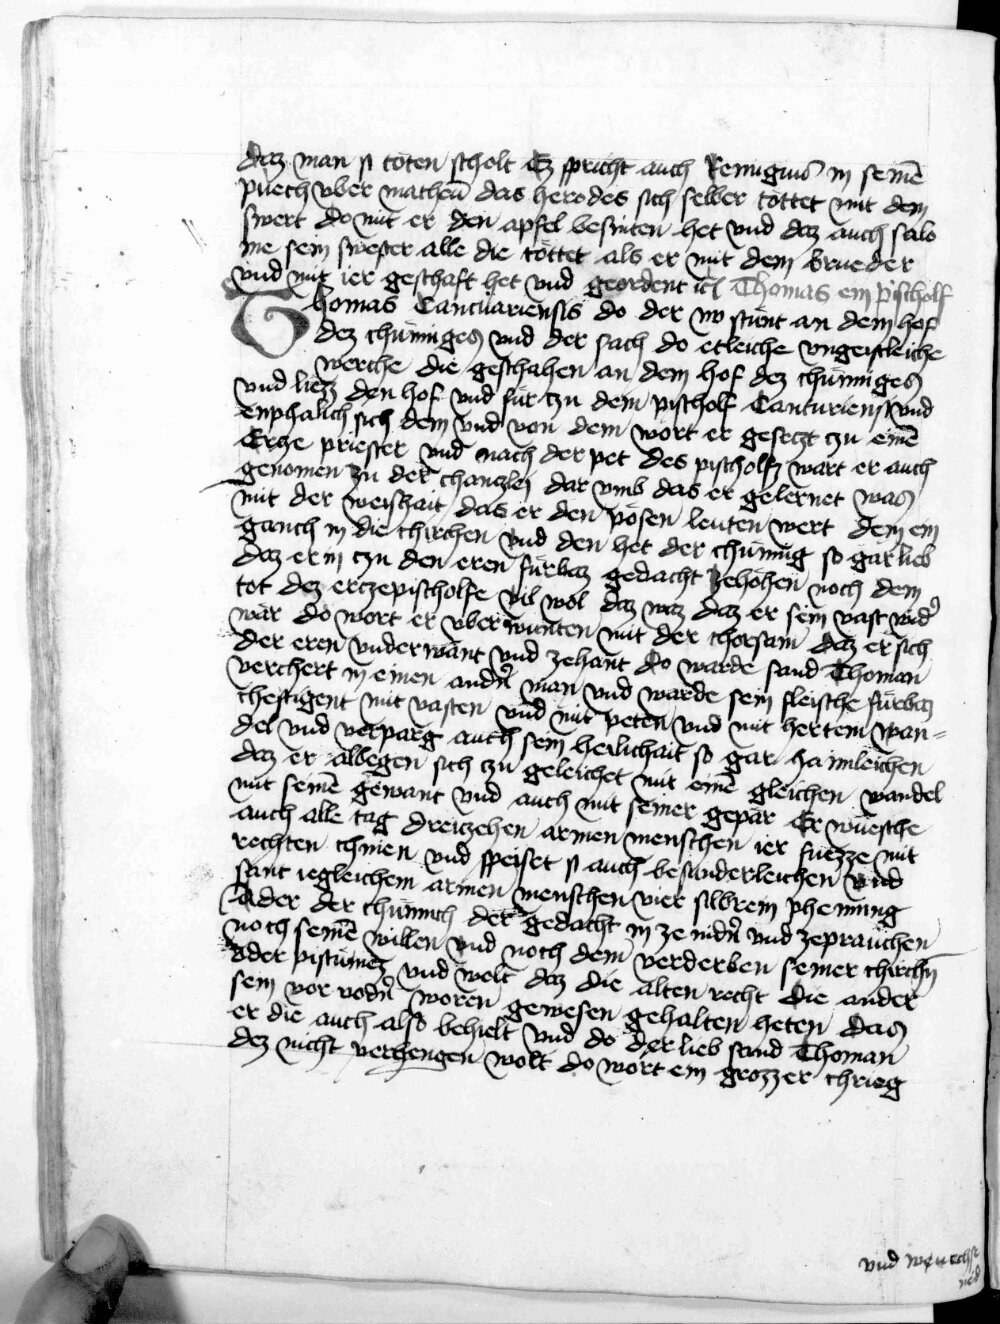 daz man si töten scholt Ez spricht auch Remigius in seinē
puech vber matheū das herodes sich selber töttet mit dem
swert do mit er den apfel besniten het vnd daz auch salo
me sein swester alle die töttet als er mit dem brueder
vnd mit ier geschaft het vnd geordent Thomas ein pischolf
Thomas Cantuariensis do der nv stünt an dem hof
dez chüniges vnd der sach do etleiche vngeistleiche
werche die geschahen an dem hof dez chüniges
vnd liezz den hof vnd für tzu dem pischolf Canturiensi vnd
enphalich sich dem vnd von dem wört er gesetzt tzu einē
Ertze priester vnd nach der pet des pischolfz wart er auch
genomen zu der chanczlej dar vmb das er gelernet was
mit der weishait das er den pösen leuten wert dem ein
ganch in die chirchen vnd den het der chünig so gar lieb
daz er in tzu den eren fürbaz gedacht zehöhen noch dem
tot dez erczepischolfe vil wol daz waz daz er sein vast wid'
wär do wort er vberwunten mit der chorsam daz er sich
der eren vnderwant vnd zehant do warde sand Thoman
verchert in einen andn̄ man vnd warde sein fleische fürbaz
chestigent mit vasten vnd mit peten vnd mit hertem wan=
del vnd verparg auch sein heilichait so gar haimleichen
daz er albegen sich tzu geleichet mit einē gleichen wandel
mit seinē gewant vnd auch mit seiner gepär Er wuesche
auch alle tag dreitzehen armen menschen ier fuezze mit
rechten chnien vnd speiset si auch besunderleichen vnd
sant iegleichem armen menschen vier silbrein phenning
Ader der chünich der gedacht in ze nidn̄ vnd zeprauchen
noch seinē willen vnd noch dem verderben seiner chirchn̄
ader pistumez vnd welt daz die alten recht die ander
sein vor vodn̄ woren gewesen gehalten heten das
er die auch also behielt vnd do der lieb sand Thoman
dez nicht verhengen wolt do wört ein grozzer chrieg
vnd